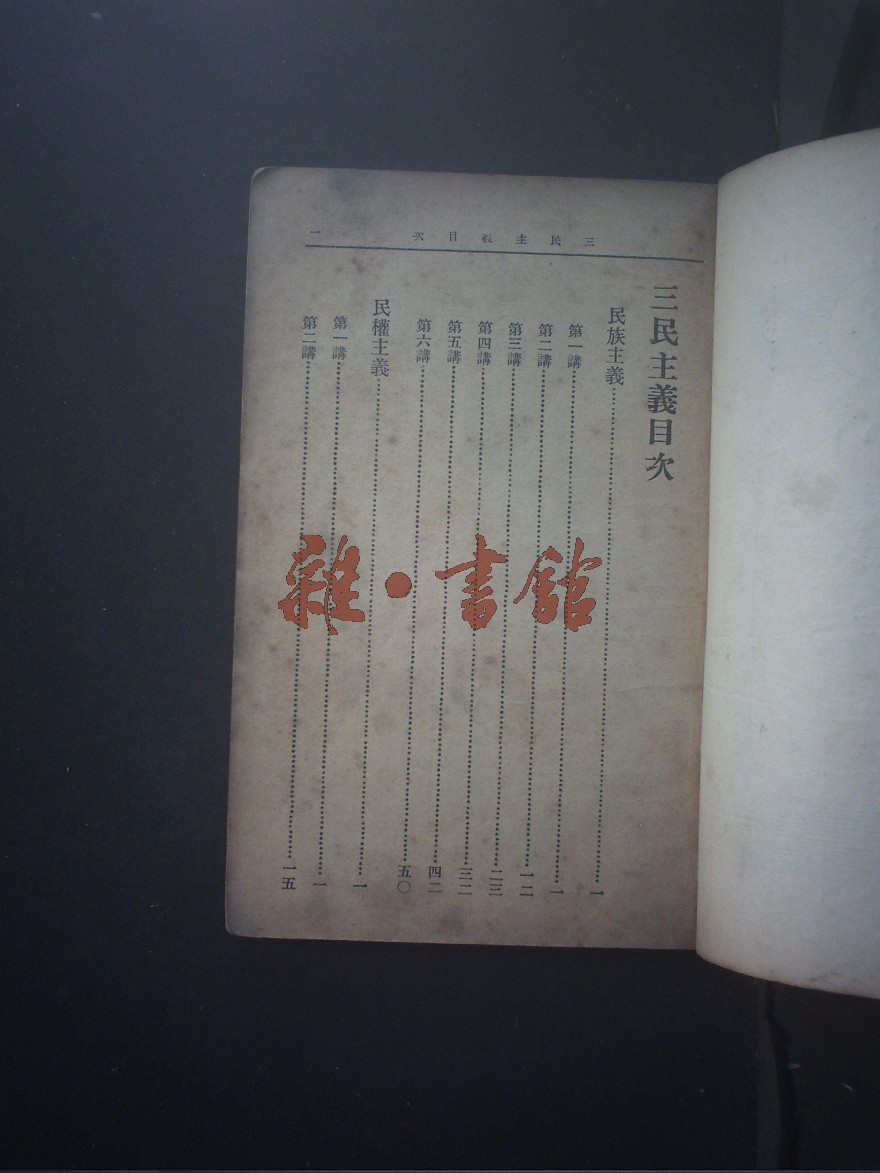 三民主義目次 一
三民主義目次
民族主義……一
第一講……一
第二講……一二
第三講……二三
第四講……三二
第五講……四二
第六講……五〇
民權主義……一
第一講……一
第二講……一五
雜·書館